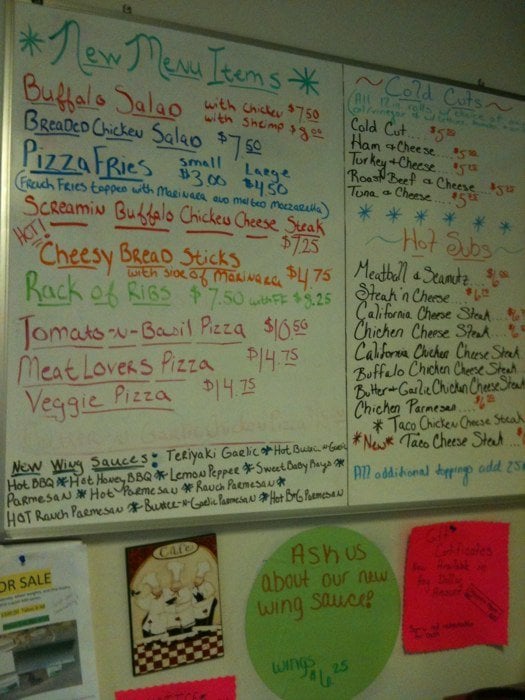 * New Menu Items *
Buffalo Salad with chicken $7.50
with shrimp $8.00
Breaded Chicken Salad $7.50
Pizza Fries small $3.00 Large $4.50
(French Fries topped with Marinara and melted Mozzarella)
Screamin Buffalo Chicken Cheese Steak
HOT! $7.25
Cheesy Bread Sticks
with side of Marinara $4.75
Rack of Ribs $7.50 with FF $8.25
Tomato-n-Basil Pizza $10.50
Meat Lovers Pizza $14.75
Veggie Pizza $14.75
New Wing Sauces: Teriyaki Garlic * Hot Butter-n-Garlic
Hot BBQ * Hot Honey BBQ * Lemon Pepper * Sweet Baby Rays *
Parmesan * Hot Parmesan * Ranch Parmesan *
HOT Ranch Parmesan * Butter-n-Garlic Parmesan * Hot BtG Parmesan
~ Cold Cuts ~
Cold Cut....$5
Ham & Cheese....$5
Turkey & Cheese....$5
Roast Beef & Cheese....$5
Tuna & Cheese....$5
~ Hot Subs ~
Meatball & Scamutz $6
Steak'n Cheese....$6
California Cheese Steak
Chicken Cheese Steak....$6
California Chicken Cheese Steak
Buffalo Chicken Cheese Steak
Butter & Garlic Chicken Cheese Steak
Chicken Parmesan....$6
* Taco Chicken Cheese Steak
*New* Taco Cheese Steak
All additional toppings add 25
FOR SALE
Cafe
Ask us
about our new
wing sauce?
wings
$6.25
Gift
Certificates
Now Available in
Any Dollar
Amount